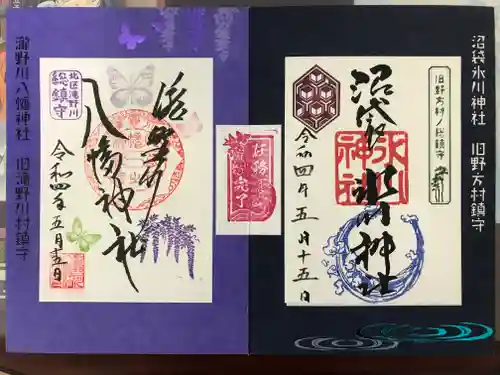 沼袋氷川神社 旧野方村鎮守
旧野方村ノ総鎮守
沼袋
氷川神社
令和四年五月十五日
氷川
神社
任務
完了
北区滝野川
総鎮守
滝野川
八幡神社
令和四年五月十五日
瀧野川八幡神社 旧瀧野川村鎮守